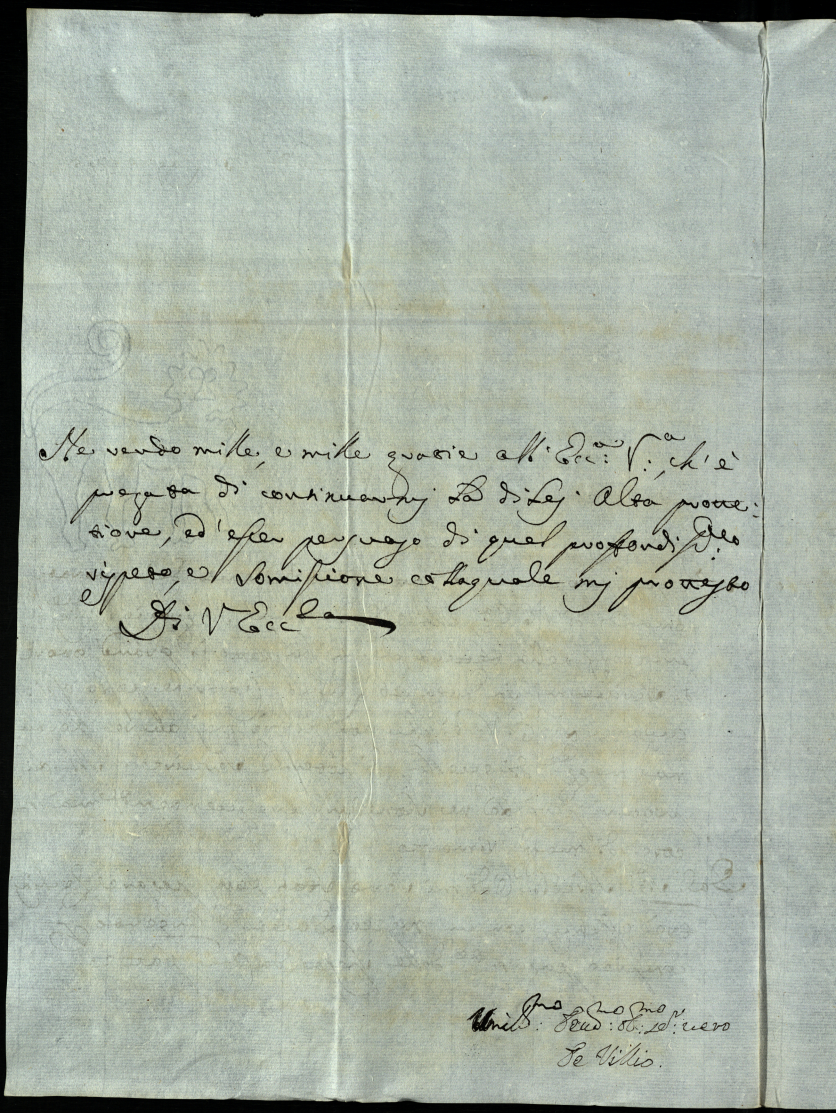 Ne rendo mille, e mille grazie all' Ecc:a V:a, ch' è
pregata di continuarmj La di Lej Alta prote:
zione, ed' esser persuaso di quel proffondissmo
rispeto, e somissione collaquale mj protesto
Di V Eccla
Umilmo: Deud:mo ob:mo ser: vero
De Villio.